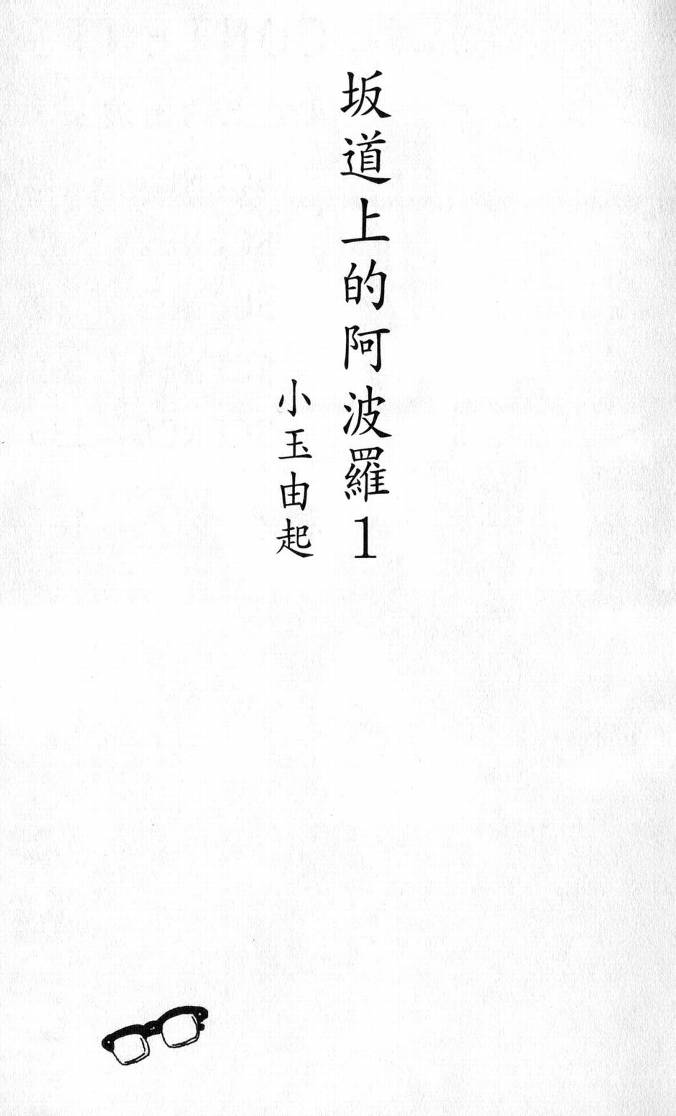 坂道上的阿波羅1
小玉由起